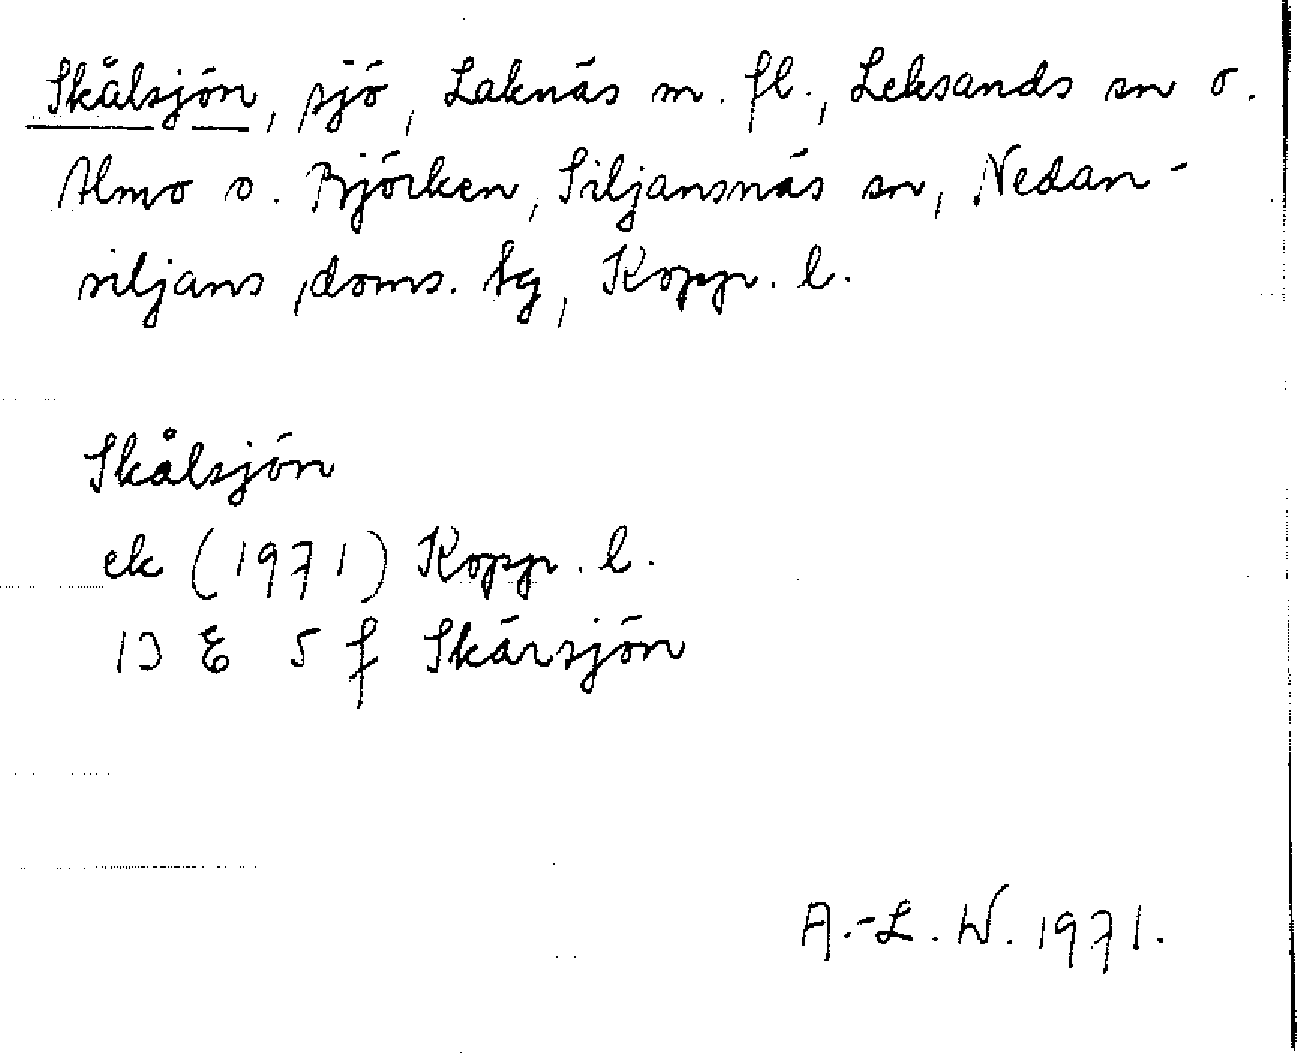 Skålsjön, sjö, Laknäs m. fl., Leksands sn o.
Almo o. Björken, Siljansnäs sn, Nedan-
siljans doms. tg, Kopp. l.
Skålsjön
ek (1971) Kopp. l.
13 E 5 f Skärsjön
A.-L. W. 1971.